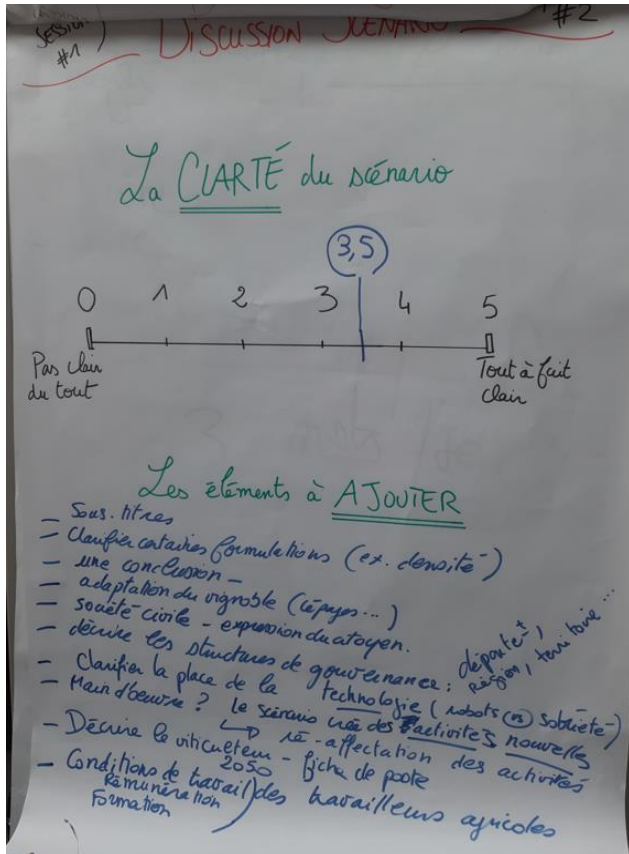 SESSION #1
DISCUSSION SCENARIO
#2
La CLARTÉ du scénario
3,5
0 1 2 3 4 5
Pas clair du tout
Tout à fait clair
Les éléments à AJOUTER
- Sous-titres
- Clarifier certaines formulations (ex. densité)
- une conclusion -
- adaptation du vignoble (cépages...)
- société civile - expression du citoyen.
- décrire les structures de gouvernance : départe-t, Région, territoire...
- Clarifier la place de la technologie (robots vs sobriété)
- Main d'oeuvre ? le scénario crée des activités nouvelles
↳ ré-affectation des activités
- Décrire le viticulteur 2050 - fiche de poste
- Conditions de travail
Rémunération
Formation
des travailleurs agricoles